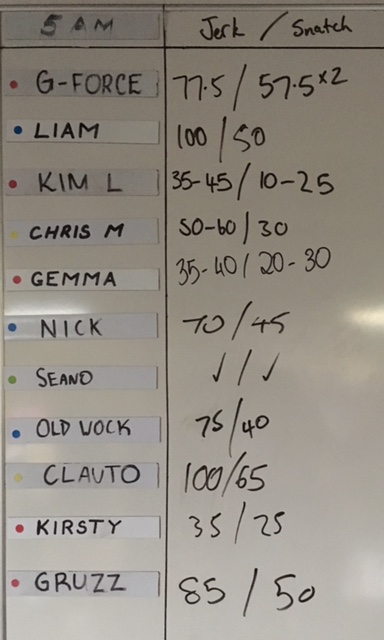 5 AM Jerk / Snatch
G-FORCE 77.5 / 57.5 x2
LIAM 100 / 50
KIM L 35-45 / 10-25
CHRIS M 50-60 / 30
GEMMA 35-40 / 20-30
NICK 70 / 45
SEANO ✓ / ✓
OLD WOCK 75/40
CLAUTO 100/65
KIRSTY 35 / 25
GRUZZ 85 / 50